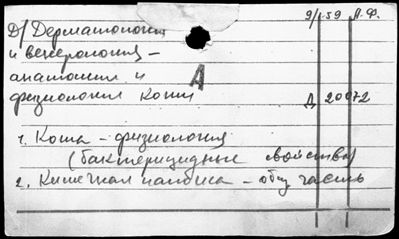 9/I-59 А.Ф.
Д/ Дерматология
и венерология -
анатомия и
физиология кожи
А
Д 20072
1. Кожа - физиология
(бактерицидные свойства)
2. - общ часть